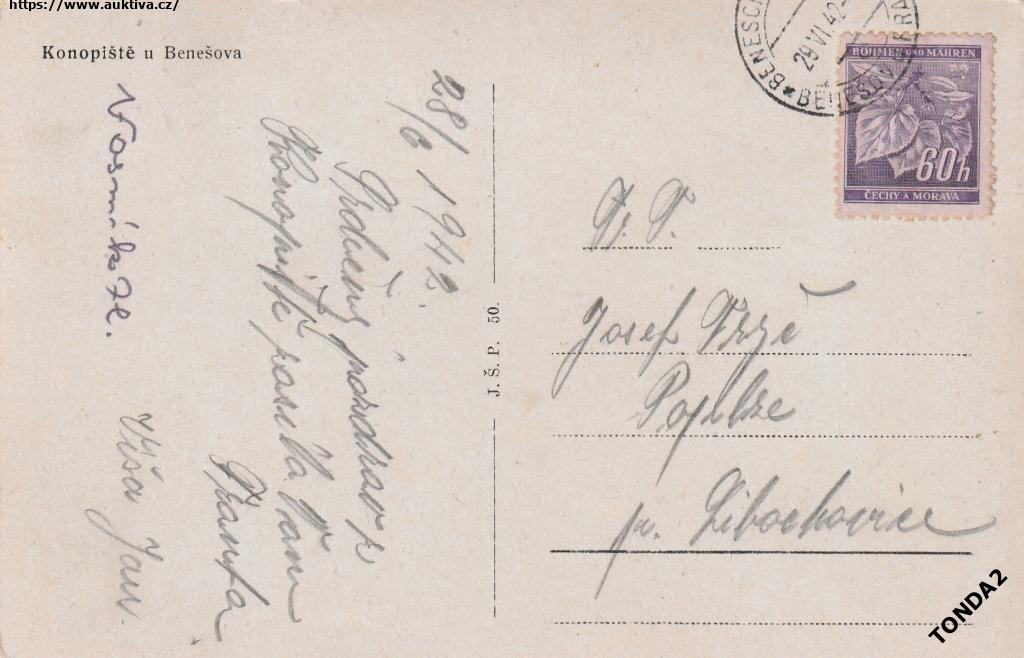 https://www.auktiva.cz/
Konopiště u Benešova
28/6 1942.
Srdečný pozdrav z
Konopiště zasílá Vám
Franta
Víša Jan.
J. Š. P. 50.
BENESCH
29 VI 42
BENEŠOV
BÖHMEN UND MÄHREN
60h
ČECHY A MORAVA
P. T.
Josef
p. Libochovice
TONDA2